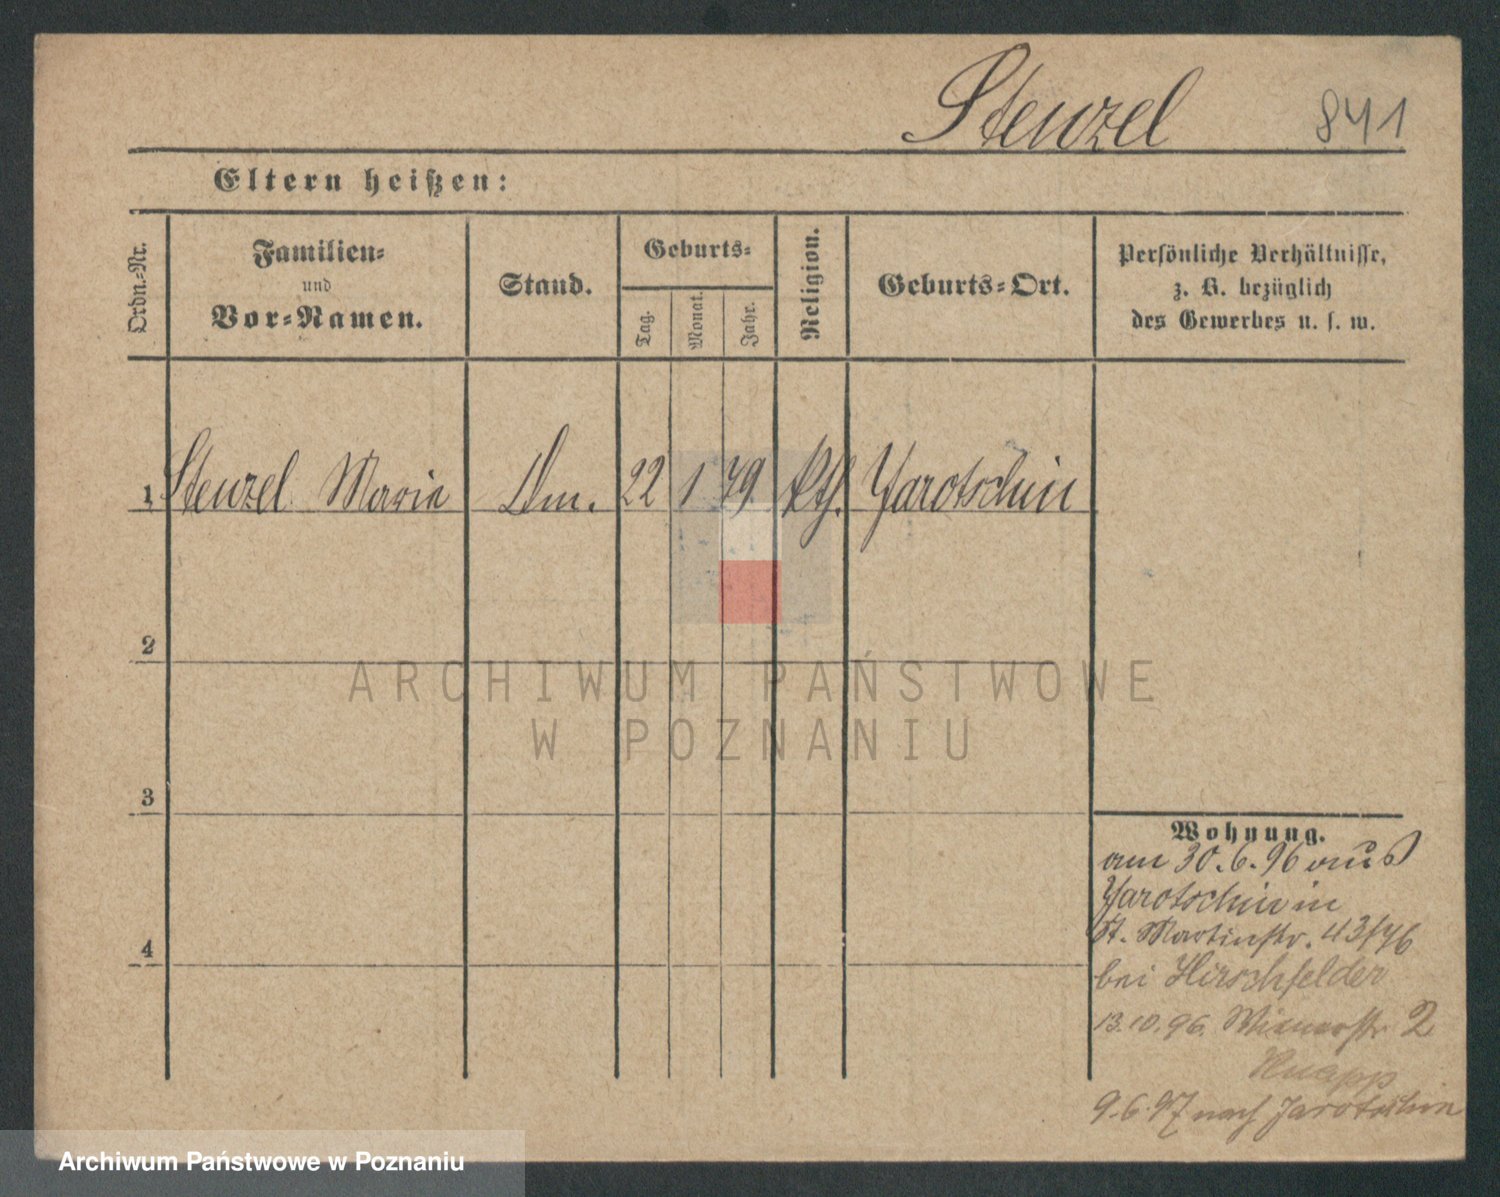 Stenzel 841
Eltern heißen:
Ordn.=Nr.
Familien=
und
Vor=Namen.
Stand.
Geburts=
Tag.
Monat.
Jahr.
Religion.
Geburts=Ort.
Persönliche Verhältnisse,
z. B. bezüglich
des Gewerbes u. s. w.
1 Stenzel Marie Dm. 22 1 79 kth. Jarotschin
2
ARCHIWUM PAŃSTWOWE
W POZNANIU
3
4
Wohnung.
am 30.6.96 aus
Jarotschin in
St. Martinstr. 43/46
bei Hirschfelder
13.10.96. 2
Knapp
9.6.97 nach Jarotschin
Archiwum Państwowe w Poznaniu